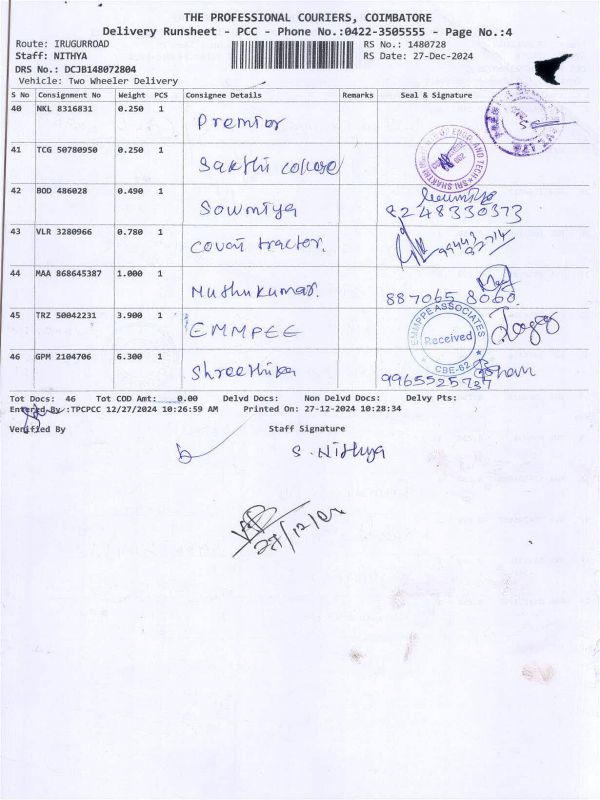 THE PROFESSIONAL COURIERS, COIMBATORE
Delivery Runsheet - PCC - Phone No.:0422-3505555 - Page No.:4
Route: IRUGURROAD RS No.: 1480728
Staff: NITHYA RS Date: 27-Dec-2024
DRS No.: DCJB148072804
Vehicle: Two Wheeler Delivery
S No Consignment No Weight PCS Consignee Details Remarks Seal & Signature
40 NKL 8316831 0.250 1 Premier
41 TCG 50780950 0.250 1 Sakthi college
42 BOD 486028 0.490 1 Sowmiya Sowmiya
8248330373
43 VLR 3280966 0.780 1 Covai tractor.
44 MAA 868645387 1.000 1 Muthukumar.
887065 8060
45 TRZ 50042231 3.900 1 EMMPEE EMMPPE ASSOCIATES Received CBE-62
46 GPM 2104706 6.300 1 Shreethika
9965525737
Tot Docs: 46 Tot COD Amt: 0.00 Delvd Docs: Non Delvd Docs: Delvy Pts:
Entered By :TPCPCC 12/27/2024 10:26:59 AM Printed On: 27-12-2024 10:28:34
Verified By Staff Signature
S. Nithya
27/12/24